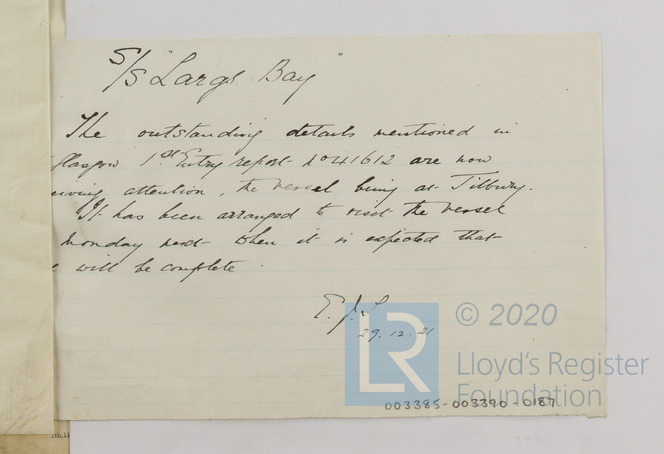 S/S "Largs Bay"
The outstanding details mentioned in
Glasgow 1st Entry report No 41612 are now
eiving attention, the vessel being at Tilbury.
It has been arranged to visit the vessel
Monday next when it is expected that
will be complete.
29.12.21
LR
© 2020
Lloyd's Register
Foundation
003385-003390-0187